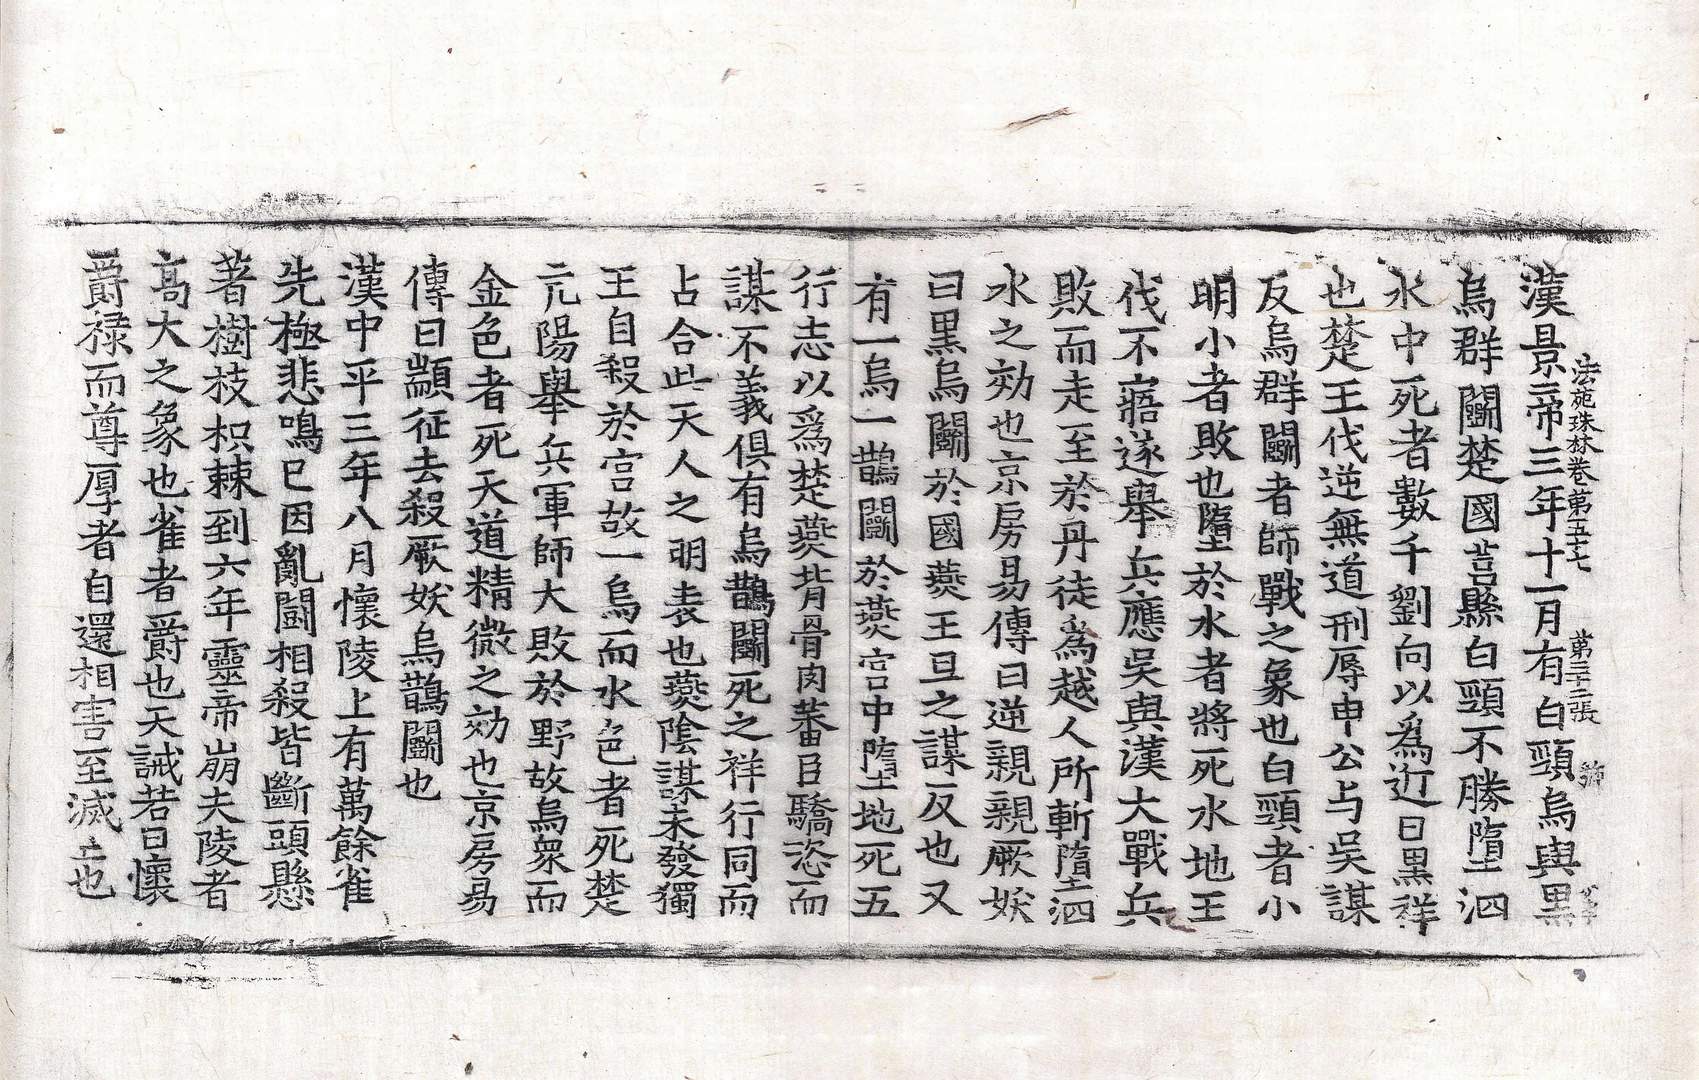 法苑珠林卷第五七　第三十二張　號
漢景帝三年十一月有白頸烏與黒
烏群鬭楚國莒縣白頸不勝墮泗
水中死者數千劉向以爲近日黒祥
也楚王伐逆無道刑辱申公与吴謀
反烏群鬭者師戰之象也白頸者小
明小者敗也墮於水者將死水地王
伐不寤遂舉兵應吴與漢大戰兵
敗而走至於丹徒爲越人所斬墮泗
水之効也京房易傳曰逆親親厥妖
曰黒烏鬭於國燕王旦之謀反也又
有一烏一鵲鬭於燕宫中墮地死五
行志以爲楚燕背骨肉蕃臣驕恣而
謀不義俱有烏鵲鬭死之祥行同而
占合此天人之明表也燕陰謀未發獨
王自殺於宫故一烏而水色者死楚
亢陽舉兵軍師大敗於野故烏衆而
金色者死天道精微之効也京房易
傳曰顓征去殺厥妖烏鵲鬭也
漢中平三年八月懷陵上有萬餘雀
先極悲鳴已因亂鬪相殺皆斷頭懸
著樹枝枳棘到六年靈帝崩夫陵者
高大之象也雀者爵也天誡若曰懷
爵禄而尊厚者自還相害至滅亡也